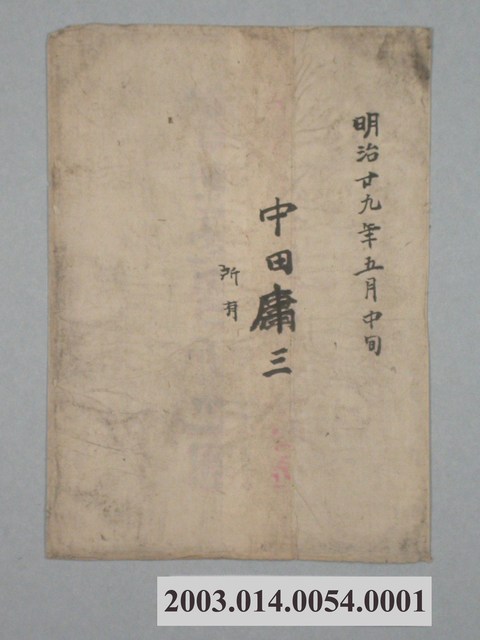 明治廿九年五月中旬
中田庸三
所有
2003.014.0054.0001